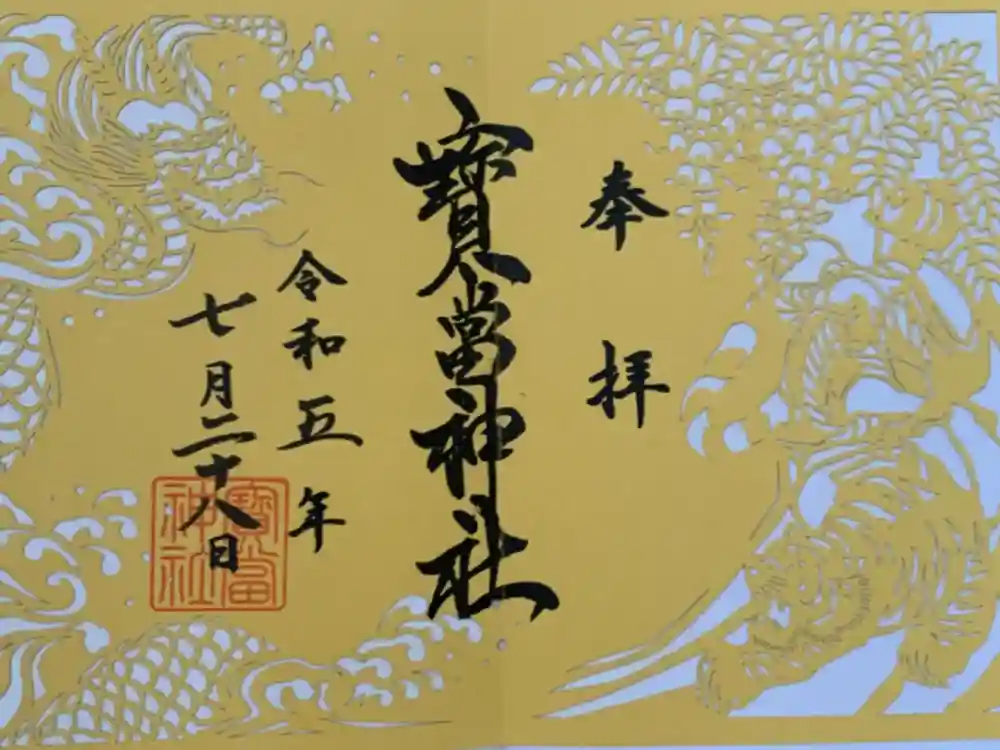 奉拝
寶當神社
令和五年
七月二十八日
寶當
神社